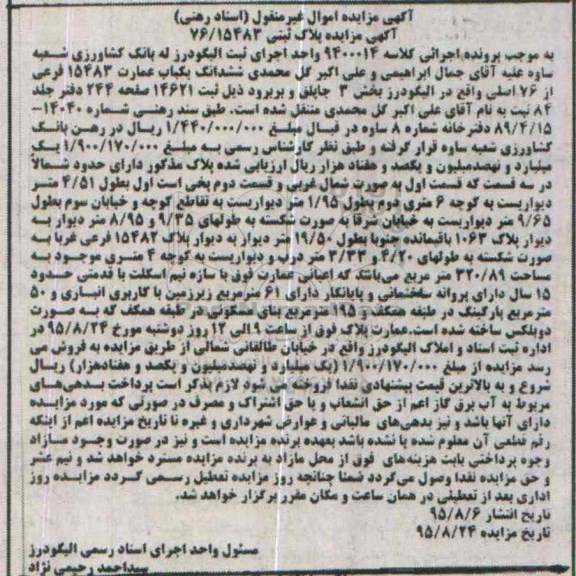 آگهی مزایده اموال غیرمنقول (اسناد رهنی)
آگهی مزایده پلاک ثبتی ۷۶/۱۵۴۸۳
به موجب پرونده اجرائی کلاسه ۹۴۰۰۰۱۴ واحد اجرای ثبت الیگودرز له بانک کشاورزی شعبه
ساوه علیه آقای جمال ابراهیمی و علی اکبر گل محمدی ششدانگ یکباب عمارت ۱۵۴۸۳ فرعی
از ۷۶ اصلی واقع در الیگودرز بخش ۳ جاپلق و بربرود ذیل ثبت ۱۴۶۲۱ صفحه ۲۴۴ دفتر جلد
۸۴ ثبت به نام آقای علی اکبر گل محمدی منتقل شده است. طبق سند رهنی شماره ۱۴۰۴۰-
۸۹/۴/۱۵ دفترخانه شماره ۸ ساوه در قبال مبلغ ۱/۴۴۰/۰۰۰/۰۰۰ ریال در رهن بانک
کشاورزی شعبه ساوه قرار گرفته و طبق نظر کارشناس رسمی به مبلغ ۱/۹۰۰/۱۷۰/۰۰۰ یک
میلیارد و نهصدمیلیون و یکصد و هفتاد هزار ریال ارزیابی شده پلاک مذکور دارای حدود شمالاً
در سه قسمت که قسمت اول به صورت شمال غربی و قسمت دوم یخی است اول بطول ۴/۵۱ متر
دیواریست به کوچه ۶ متری دوم بطول ۱/۹۵ متر دیواریست به تقاطع کوچه و خیابان سوم بطول
۹/۶۵ متر دیواریست به خیابان شرقا به صورت شکسته به طولهای ۹/۳۵ و ۸/۹۵ متر دیوار به
دیوار پلاک ۱۰۶۳ باقیمانده جنوبا بطول ۱۹/۵۰ متر دیوار به دیوار پلاک ۱۵۴۸۲ فرعی غربا به
صورت شکسته به طولهای ۴/۲۰ و ۳/۳۳ متر درب و دیواریست به کوچه ۴ متری موجود به
مساحت ۳۲۰/۸۹ متر مربع می‌باشد که اعیانی عمارت فوق با سازه نیم اسکلت با قدمتی حدود
۱۵ سال دارای پروانه ساختمانی و پایانکار دارای ۶۱ مترمربع زیرزمین با کاربری انباری و ۵۰
مترمربع پارکینگ در طبقه همکف و ۱۹۵ مترمربع بنای مسکونی در طبقه همکف که به صورت
دوبلکس ساخته شده است.عمارت پلاک فوق از ساعت ۹ الی ۱۲ روز دوشنبه مورخ ۹۵/۸/۲۴ در
اداره ثبت اسناد و املاک الیگودرز واقع در خیابان طالقانی شمالی از طریق مزایده به فروش می
رسد مزایده از مبلغ ۱/۹۰۰/۱۷۰/۰۰۰ (یک میلیارد و نهصدمیلیون و یکصد و هفتادهزار) ریال
شروع و به بالاترین قیمت پیشنهادی نقدا فروخته می شود لازم بذکر است پرداخت بدهی‌های
مربوط به آب برق گاز اعم از حق انشعاب و یا حق اشتراک و مصرف در صورتی که مورد مزایده
دارای آنها باشد و نیز بدهی‌های مالیاتی و عوارض شهرداری و غیره تا تاریخ مزایده اعم از اینکه
رقم قطعی آن معلوم شده یا نشده باشد بعهده برنده مزایده است و نیز در صورت وجود مازاد
وجوه پرداختی بابت هزینه‌های فوق از محل مازاد به برنده مزایده مسترد خواهد شد و نیم عشر
و حق مزایده نقدا وصول می‌گردد ضمنا چنانچه روز مزایده تعطیل رسمی گردد مزایده روز
اداری بعد از تعطیلی در همان ساعت و مکان مقرر برگزار خواهد شد.
تاریخ انتشار ۹۵/۸/۶
تاریخ مزایده ۹۵/۸/۲۴
مسئول واحد اجرای اسناد رسمی الیگودرز
سیداحمد رحیمی نژاد